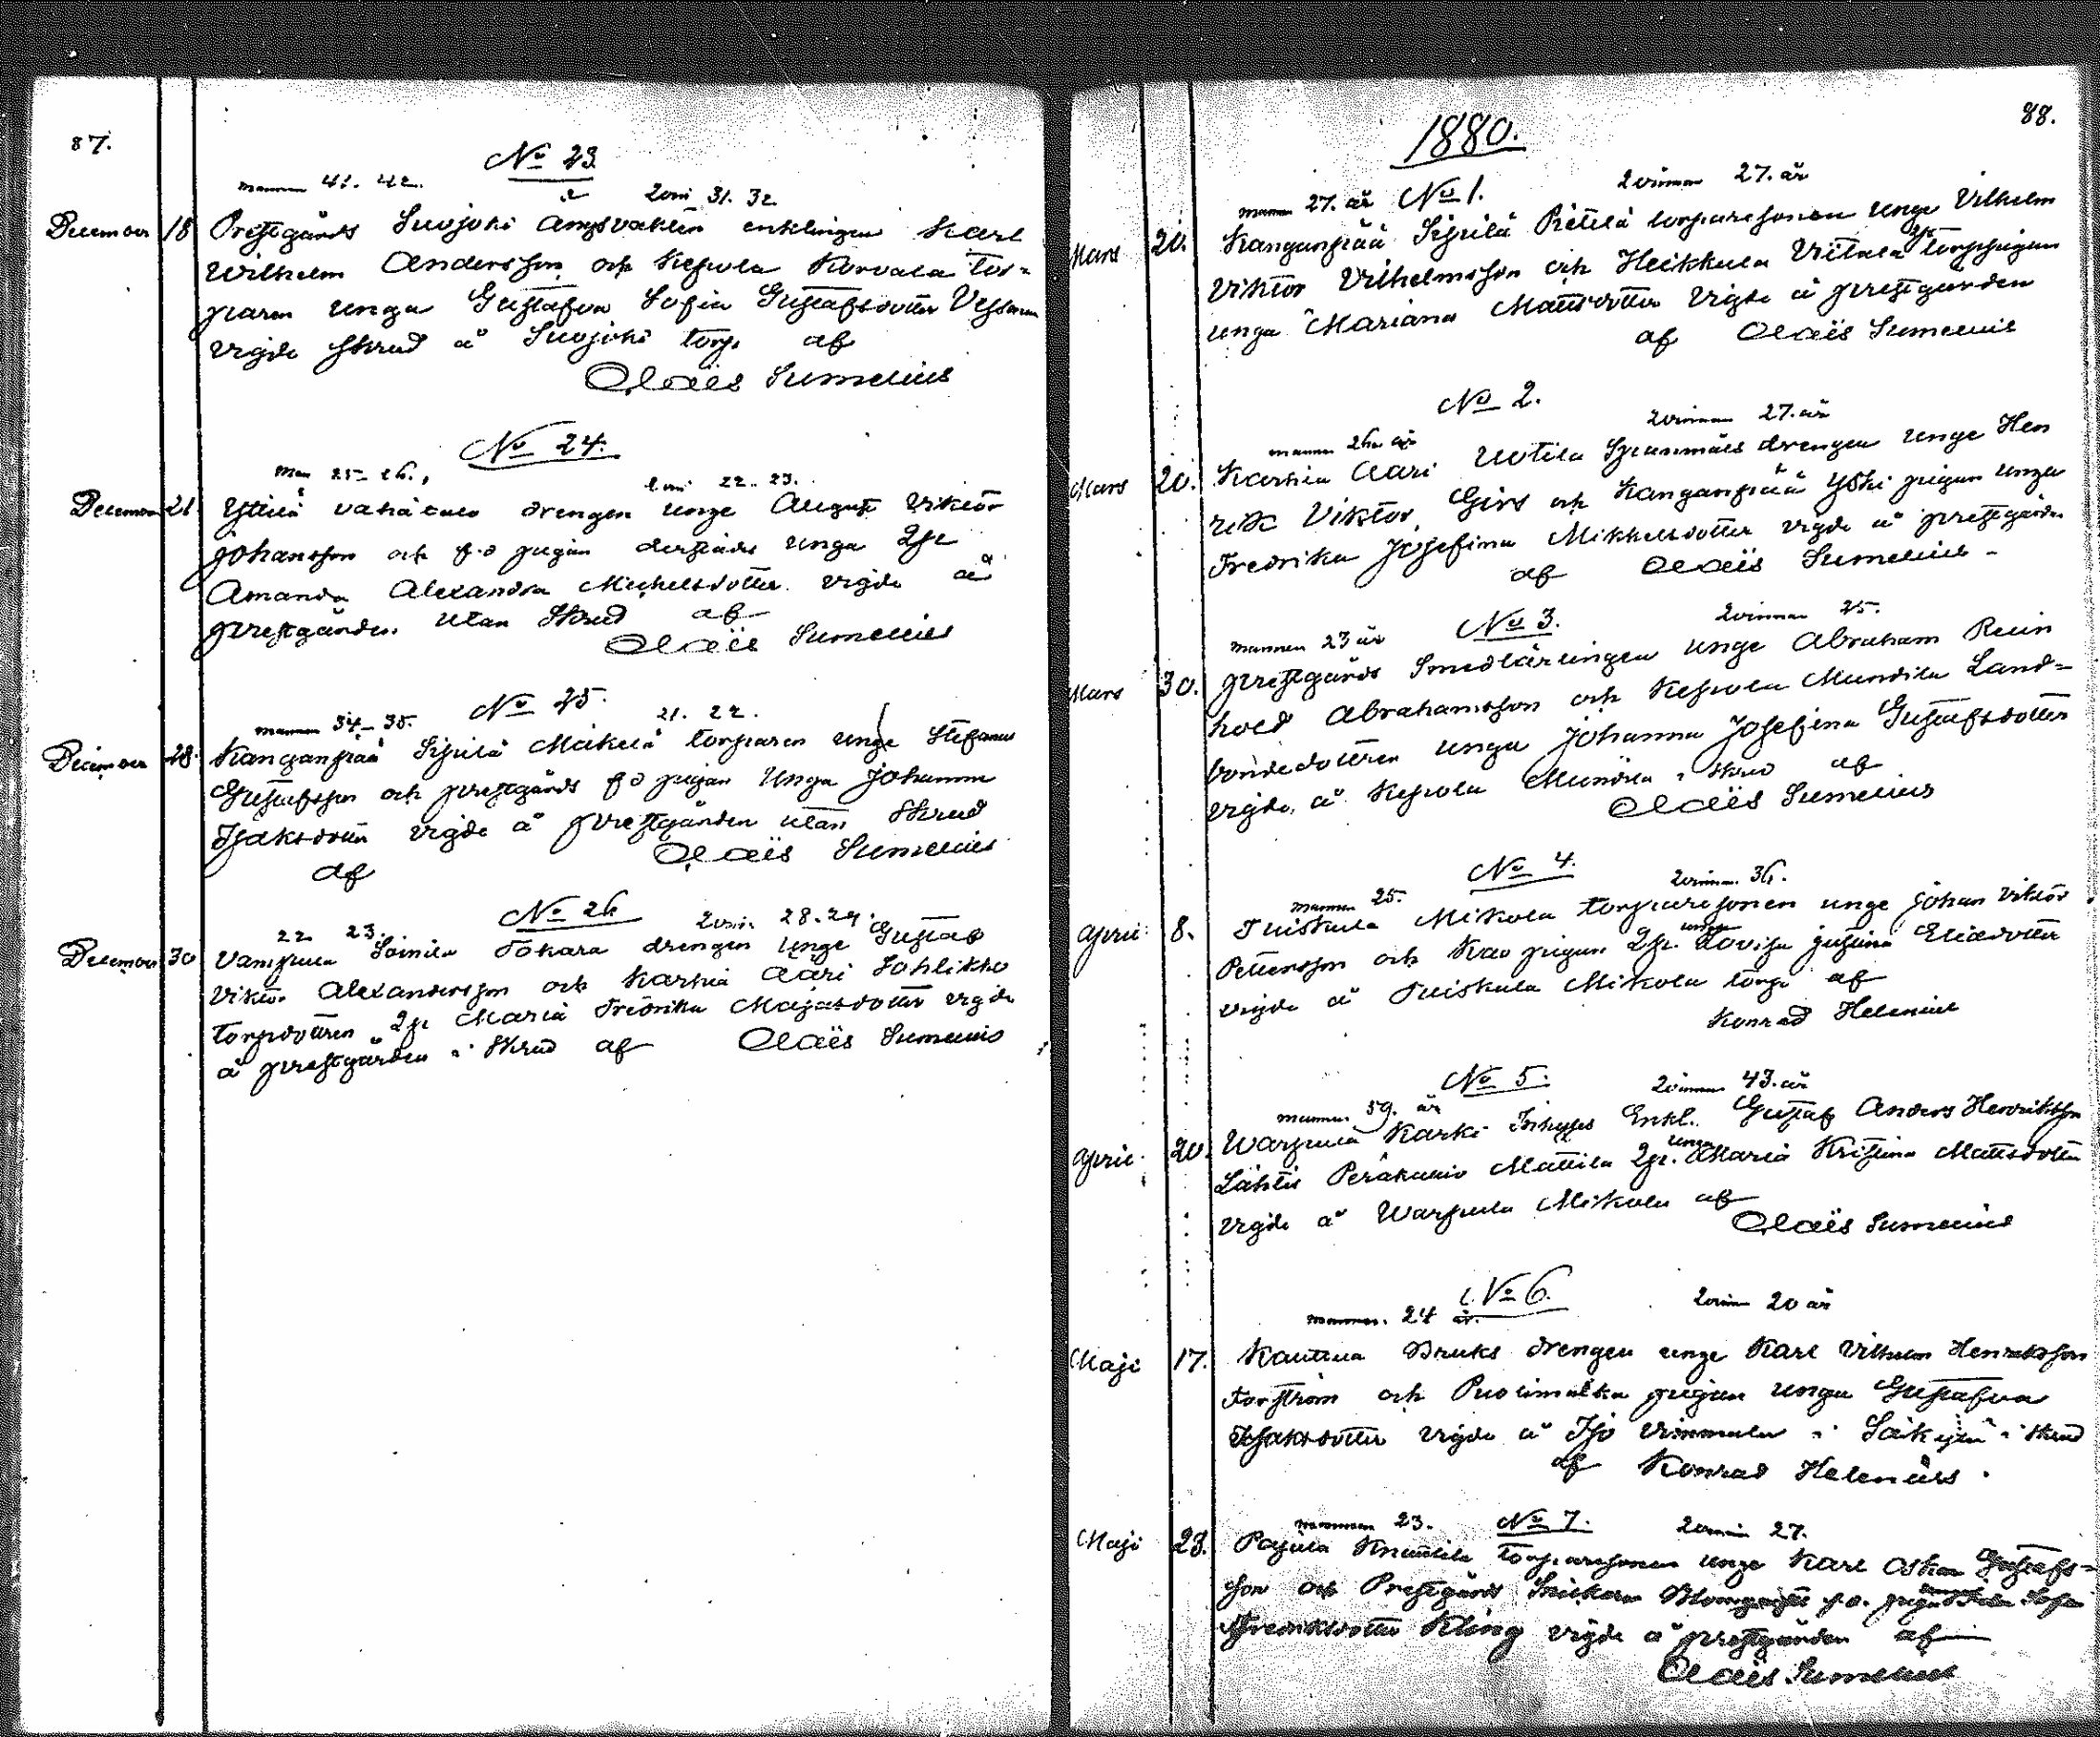 87.
No 23
mannen 41. 42. 2 qvin 31. 32
December 18 Prestgårds Suojoki ångsvakten enklingen Karl
Wilhelm Andersson och Kepola Korvala tor=
paren unga Gustafva Sofia Gustafsdotter
vigde skrud å Suojoki torp af
Claës Sumelius
No 24.
man 25-26., qvin 22-23.
December 21 Yttilä drengen unge August Viktor
Johansson och f.d pigan unga Qp
Amanda Alexandra Michelsdotter vigde å
prestgården utan skrud af
Claës Sumelius
No 25.
mannen 34-35. 21. 22.
December 28. Kanganpää Sipilä Mäkelä torparen unge Stefanus
Gustafsson och prestgårds f d pigan Unga Johanna
Isaksdotter vigde å prestgården utan skrud
af Claës Sumelius
No 26
22 23. qvin. 28-29.
December 30 Vampula Soinila Tokara drengen unge Gustaf
Viktor Alexandersson och Karhia Aari
torpdottren Qp Maria Fredrika Majasdotter vigde
å prestgården i skrud af Claës Sumelius
88.
1880.
mannen 27. år No 1. qvinnan 27. år
Mars 20. Kanganpää Sipilä Pietilä torparesonen unge Vilhelm
Viktor Vilhelmsson och Heikkula Vitala Qp torppigan
unga Mariana Mattsdotter vigde å prestgården
af Claës Sumelius
No 2.
mannen 26 år qvinnan 27. år
Mars 20. Karhia Aari Uotila Spanmäls drengen unge Hen
rik Viktor Girs och Kanganpää Yski pigan unga
Fredrika Josefina Mikkelsdotter vigde å prestgården
af Claës Sumelius
No 3.
mannen 23 år qvinnan 25.
Mars 30. prestgårds Smedlärlingen unge Abraham Rein
hold Abrahamsson och Kepola Mundila Land=
bondedottren unga Johanna Josefina Gustafsdotter
vigde å Kepola Mundila i skrud af
Claës Sumelius
No 4.
mannen 25. qvinnan 36.
April 8. Tuiskula Mikola torparesonen unge Johan Viktor
Pettersson och pigan Qp. unga Lovisa Justina Eliasdotter
vigde å Tuiskula Mikola torp af
Konrad Helenius
No 5.
mannen 59. år qvinnan 43. år
April 20. Warpula Karki Inhyses Enkl. Gustaf Anders Henriksson
Lähtis Peräkulio Mattila Qp. unga Maria Kristina Mattsdotter
vigde å Warpula Mikola af
Claës Sumelius
No 6.
mannen. 24 år. qvin 20 år
Maji 17. Kauttua Bruks drengen unge Karl Vilhelm Henriksson
Forström och Puolimatka pigan unga Gustafva
Isaksdotter vigde å Iso Vimmala i Säkylä i skrud
af Konrad Helenius.
mannen 23. No 7. qvin 27.
Maji 23. Pajula Knuutila torparesonen unge Karl Oskar Gustafs=
son och Prestgårds Snickaren f.d. pigan Sofia
Fredriksdotter Kling vigde å prestgården af
Claës Sumelius